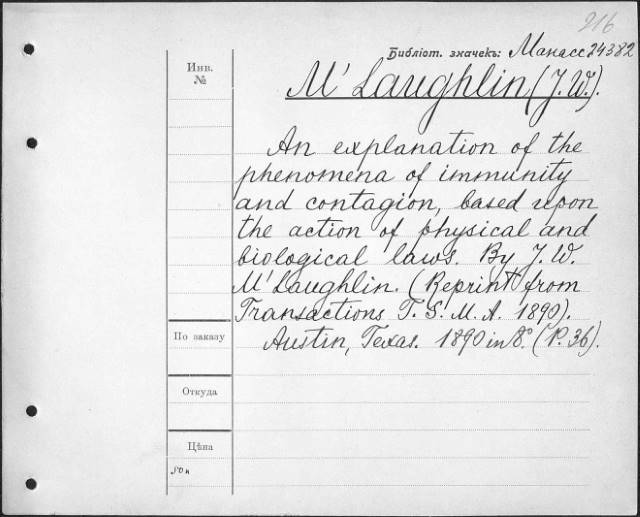 216
Библіот. значекъ: Манасс 24382
Инв.
№
M' Laughlin (J. W.).
An explanation of the
phenomena of immunity
and contagion, based upon
the action of physical and
biological laws. By J. W.
M' Laughlin. (Reprint from
Transactions T. S. M. A. 1890).
По заказу
Austin, Texas. 1890 in 8°. (P. 36).
Откуда
Цѣна
50 к